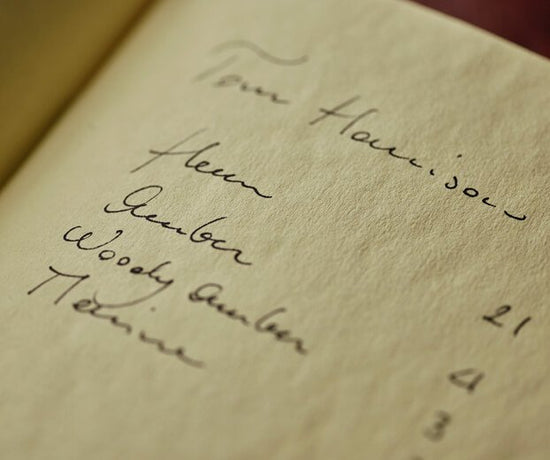 Tom Harrison
21
Amber 4
Woody Amber 3
Marine